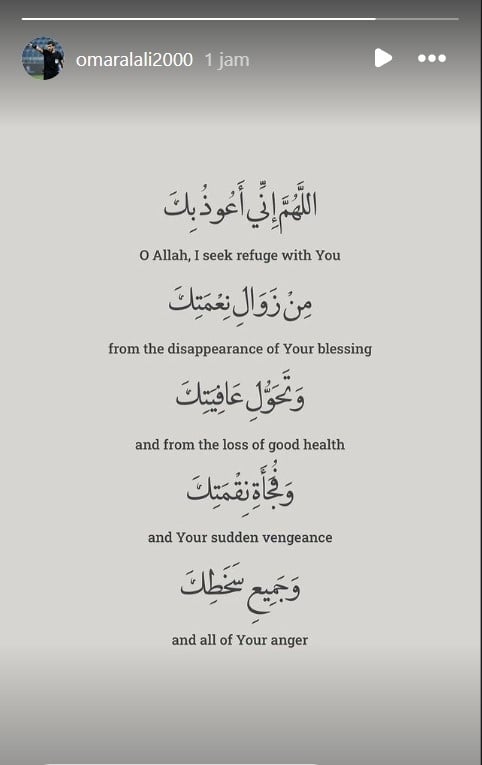 omaralali2000 1 jam
اللَّهُمَّ إِنِّي أَعُوذُ بِكَ
O Allah, I seek refuge with You
مِنْ زَوَالِ نِعْمَتِكَ
from the disappearance of Your blessing
وَتَحَوُّلِ عَافِيَتِكَ
and from the loss of good health
وَفُجَأَةِ نِقْمَتِكَ
and Your sudden vengeance
وَجَمِيعِ سَخَطِكَ
and all of Your anger